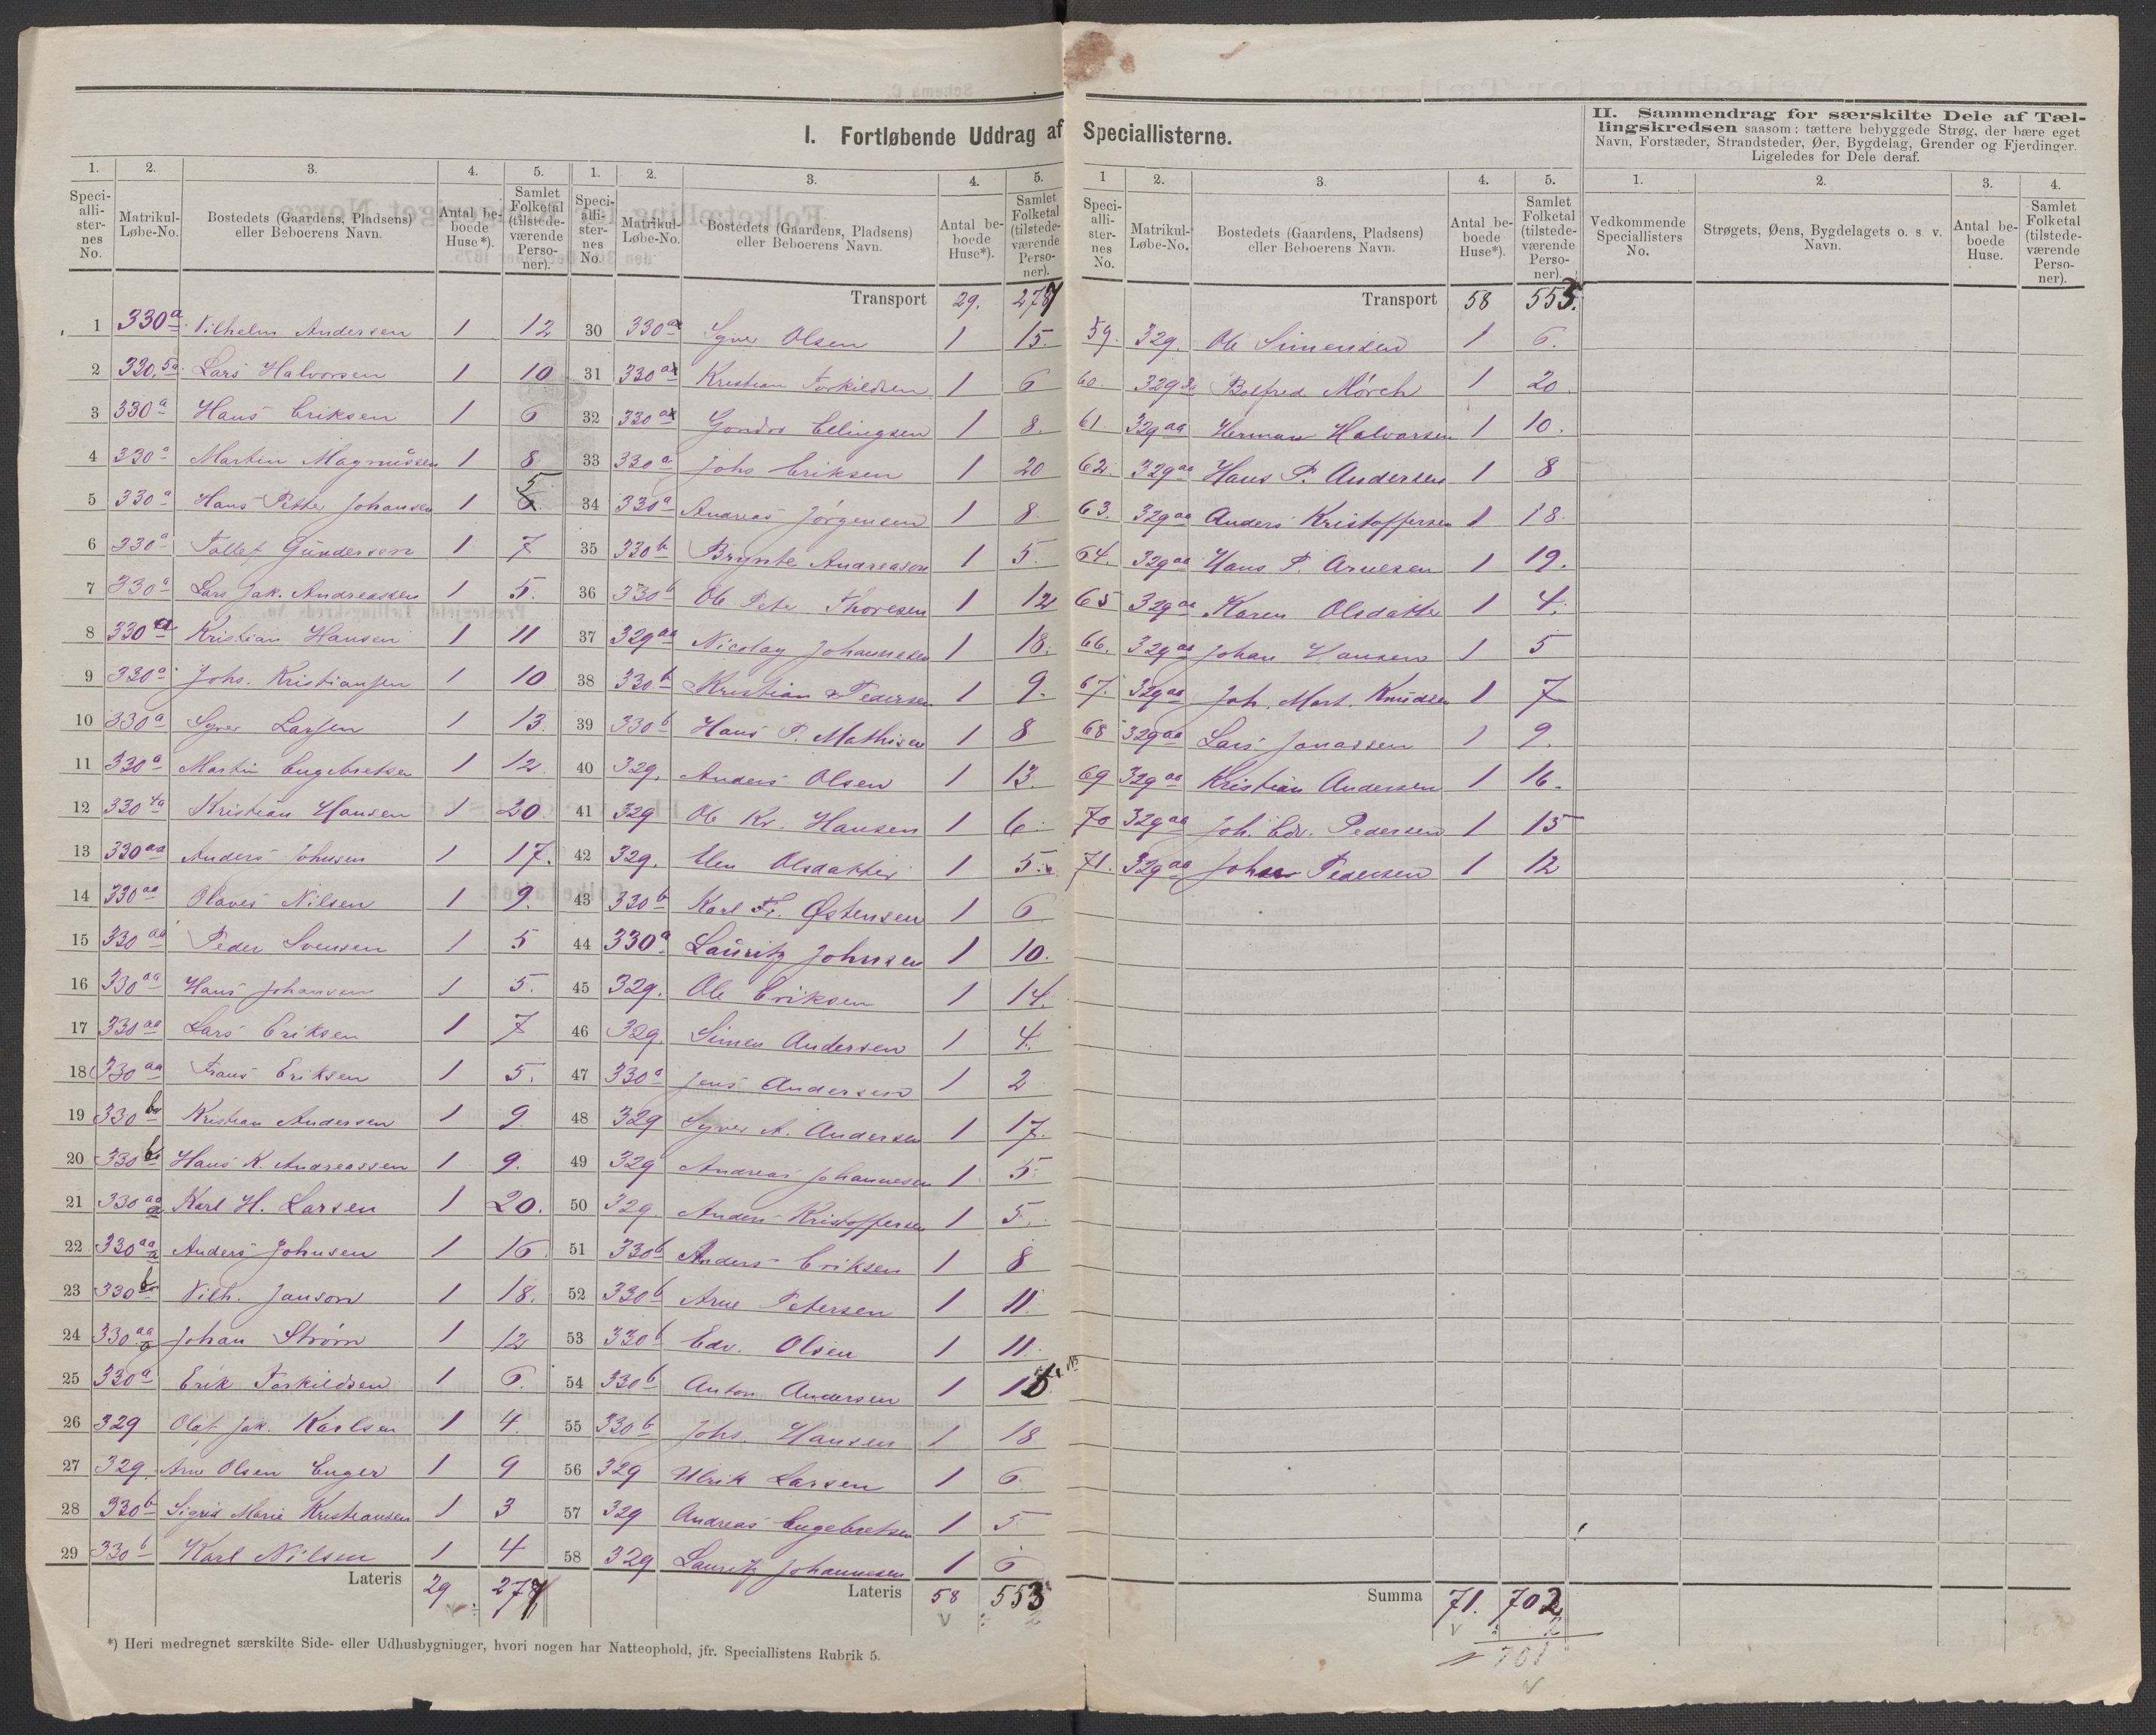 I. Fortløbende Uddrag af Speciallisterne.
II. Sammendrag for særskilte Dele af Tæl-
lingskredsen saasom: tættere bebyggede Strøg, der bære eget
Navn, Forstæder, Strandsteder, Øer, Bygdelag, Grender og Fjerdinger.
Ligeledes for Dele deraf.
1. 2. 3. 4. 5.
Speci-alli-ster-nes No. Matrikul-Løbe-No. Bostedets (Gaardens, Pladsens) eller Beboerens Navn. Antal be-boede Huse*). Samlet Folketal (tilstede-værende Perso-ner).
1 330a Vilhelm Andersen 1 12
2 330.5a Lars Halvorsen 1 10
3 330a Hans Eriksen 1 6
4 330a Martin Magnussen 1 8
5 330a Hans Petter Johansen 1 5
6 330a Tollef Gundersen 1 7
7 330a Lars Jak. Andreassen 1 5.
8 330a Kristian Hansen 1 11
9 330a Johs. Kristiansen 1 10
10 330a Syver Larsen 1 13.
11 330a Martin Engebretsen 1 12
12 330 4a Kristian Hansen 1 20
13 330aa Anders Johnsen 1 17.
14 330aa Olaves Nilsen 1 9.
15 330aa Peder Svensen 1 5
16 330aa Hans Johansen 1 5.
17 330aa Lars Eriksen 1 7
18 330aa Frans Eriksen 1 5.
19 330b Kristian Andersen 1 9
20 330b Hans K. Andreassen 1 9.
21 330aa Karl H. Larsen 1 20.
22 330aa Anders Johnsen 1 16
23 330b Vilh. Janson 1 18.
24 330aa Johan Strøm 1 12
25 330a Erik Torkildsen 1 6.
26 329 Olaf Jak. Karlsen 1 4.
27 329. Arne Olsen Enger 1 9
28 330b Sigrid Marie Kristiansen 1 3
29 330b Karl Nilsen 1 4
Lateris 29 277
1. 2. 3. 4. 5.
Speci-alli-ster-nes No. Matrikul-Løbe-No. Bostedets (Gaardens, Pladsens) eller Beboerens Navn. Antal be-boede Huse*). Samlet Folketal (tilstede-værende Perso-ner).
Transport 29. 277
30 330a Syver Olsen 1 15.
31 330a Kristian Torkildsen 1 6
32 330a Ellingsen 1 8.
33 330a Johs Eriksen 1 20
34 330a Andreas Jørgensen 1 8.
35 330b Brynte Andreason 1 5.
36 330b Ole Peter Thoresen 1 12
37 329aa Nicolay Johannesen 1 18.
38 330b Kristian Pedersen 1 9.
39 330b Hans P. Mathisen 1 8
40 329. Anders Olsen 1 13.
41 329 Ole Kr. Hansen 1 6.
42 329. Elen Olsdatter 1 5.
43 330b Karl Fr. Østensen 1 6
44 330a Lauritz Johnsen 1 10.
45 329. Ole Eriksen 1 14.
46 329. Simen Andersen 1 4.
47 330a Jens Andersen 1 2
48 329 Syver A. Andersen 1 17.
49 329 Andreas Johannesen 1 5.
50 329. Anders Kristoffersen 1 5.
51 330b Anders Eriksen 1 8
52 330b Arne Petersen 1 11.
53 330b Edv. Olsen 1 11.
54 330b Anton Andersen 1
55 330b Johs. Hansen 1 18
56 329 Ulrik Larsen 1 6.
57 329 Andreas Engebretsen 1 5
58 329 Lauritz Johannesen 1 6
Lateris 58 553
1 2. 3. 4. 5.
Speci-alli-ster-nes No. Matrikul-Løbe-No. Bostedets (Gaardens, Pladsens) eller Beboerens Navn. Antal be-boede Huse*). Samlet Folketal (tilstede-værende Perso-ner).
Transport 58 553.
59. 329. Ole Simensen 1 6.
60 329 Bolfred Mörch 1 20.
61 329aa Herman Halvorsen 1 10.
62. 329aa Hans P. Andersen 1 8
63. 329aa Anders Kristoffersen 1 18.
64. 329aa Hans P. Arnesen 1 19.
65 329aa Karen Olsdatter 1 4.
66. 329aa Johan Hansen 1 5
67. 329aa Joh. Mart. Knudsen 1 7
68 329aa Lars Jonassen 1 9.
69 329aa Kristian Andersen 1 16.
70 329aa Joh. Edv. Pedersen 1 15
71. 329aa Johan Pedersen 1 12
Summa 71. 702
701
1. 2. 3. 4.
Vedkommende Speciallisters No. Strøgets, Øens, Bygdelagets o. s. v. Navn. Antal be-boede Huse. Samlet Folketal (tilstede-værende Perso-ner).
*) Heri medregnet særskilte Side- eller Udhusbygninger, hvori nogen har Natteophold, jfr. Speciallistens Rubrik 5.